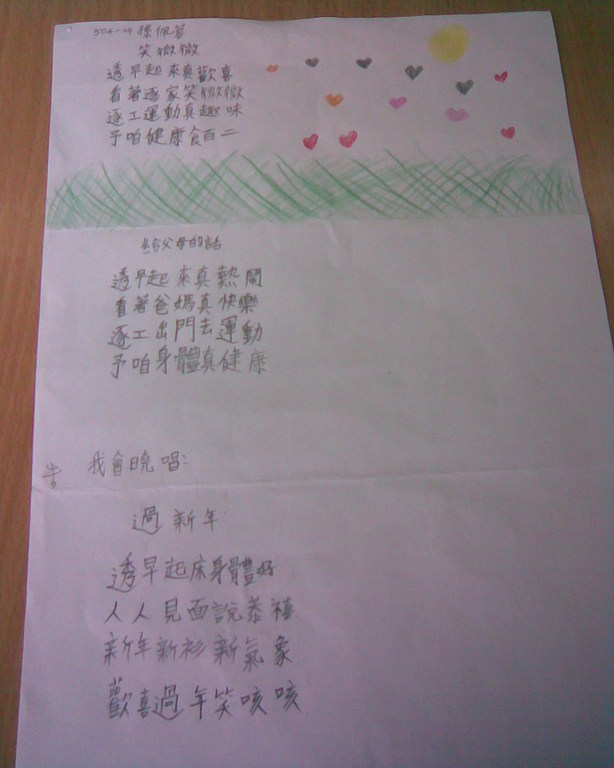 504-24 孫佩萱
笑微微
透早起來真歡喜
看著逐家笑微微
逐工運動真趣味
予咱健康食百二
給父母的話
透早起來真熱鬧
看著爸媽真快樂
逐工出門去運動
予咱身體真健康
我會曉唱:
過新年
透早起床身體好
人人見面說恭禧
新年新衫新氣象
歡喜過年笑咳咳